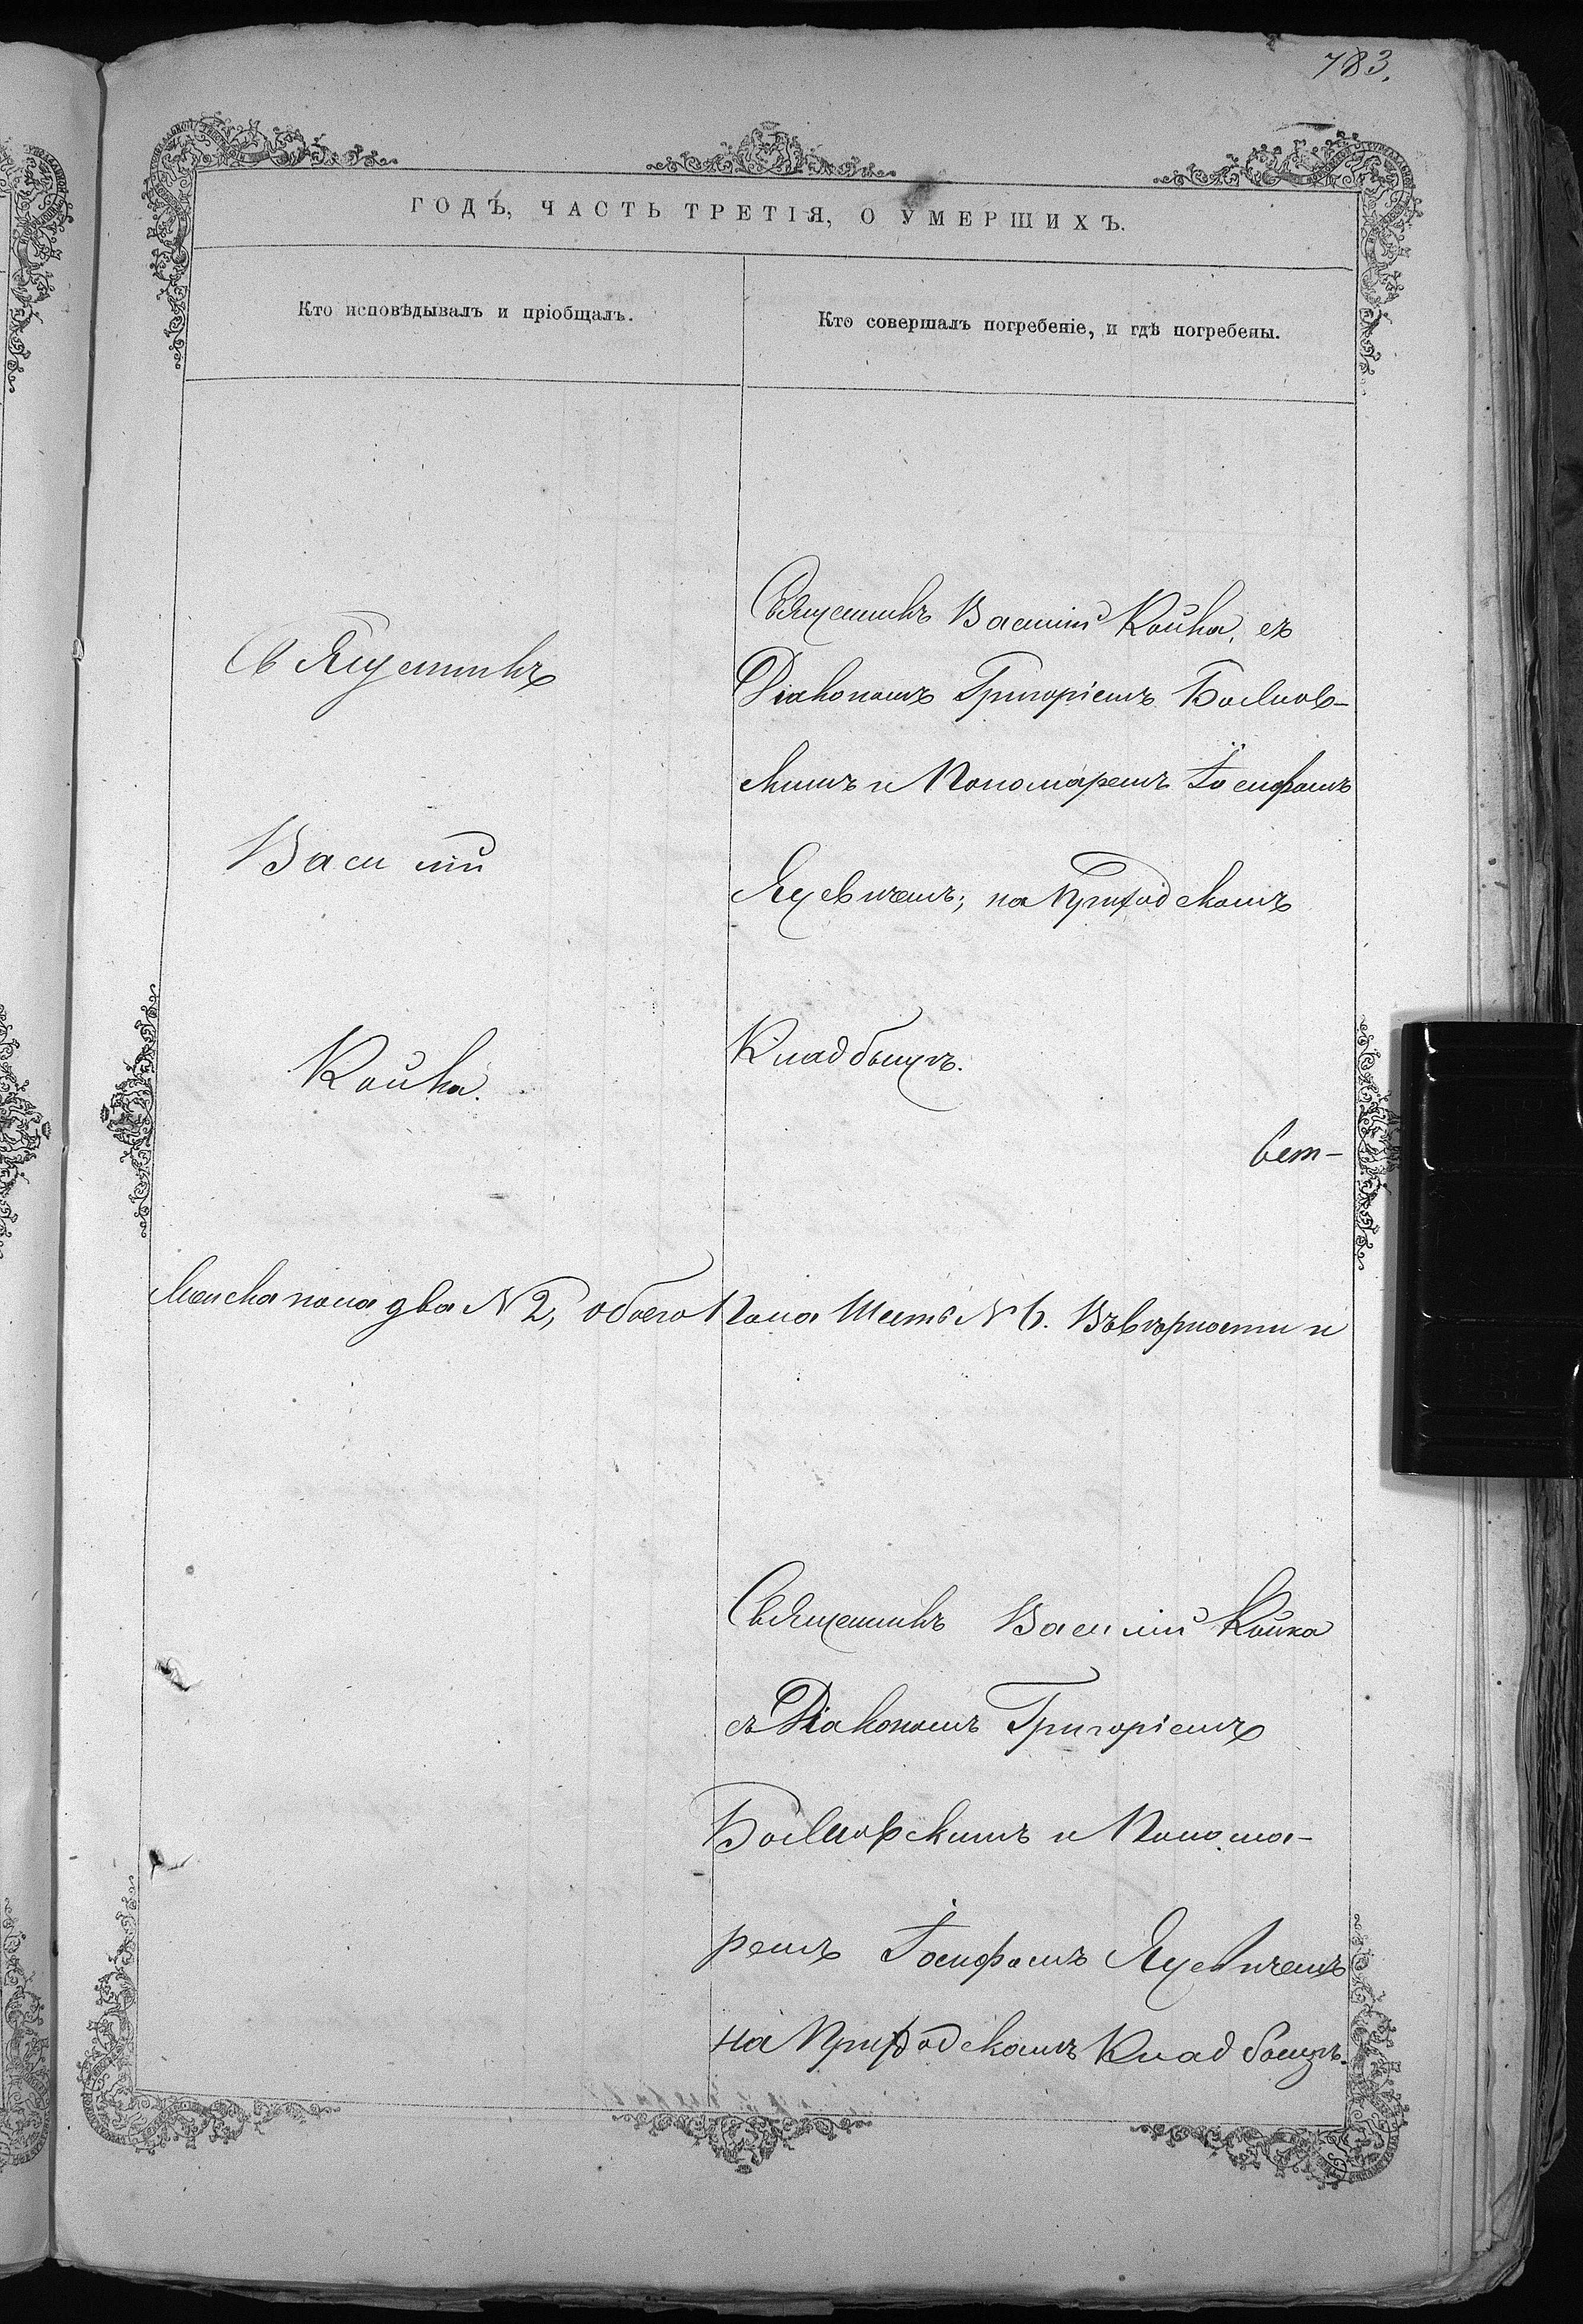 783.
ГОДЪ, ЧАСТЬ ТРЕТІЯ, О УМЕРШИХЪ.
Кто исповѣдывалъ и пріобщалъ.
Кто совершалъ погребеніе, и гдѣ погребены.
Священникъ
Василій
Койка.
Священникъ Василій Койка, съ
Діакономъ Григоріемъ Бояков-
скимъ и Пономаремъ Іосифомъ
на Приходскомъ
Кладбищѣ.
вет-
женска пола два N 2, обоего Пола Шесть N 6. Въ вѣрности и
Священникъ Василій Койка
съ Діакономъ Григоріемъ
и Понома-
ремъ Іосифомъ
на Приходскомъ Кладбищѣ.